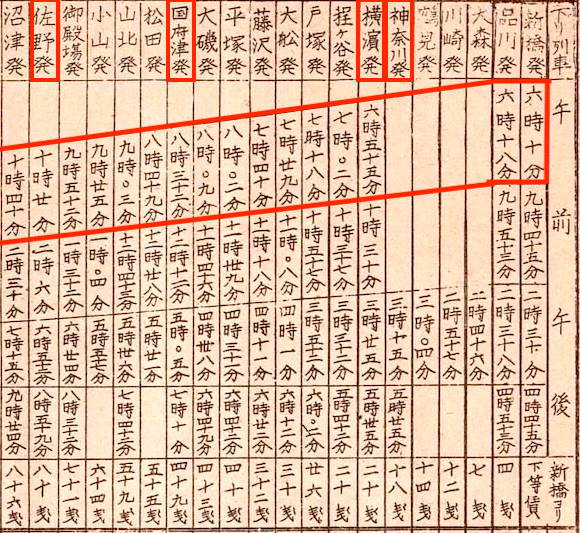 下り列車 午前 午後 新橋ヨリ
新橋発 六時十分 九時四十五分 二時三十分 四時四十五分 下等賃
品川発 六時十八分 九時五十三分 二時三十八分 四時五十三分 四銭
大森発 二時四十六分 七銭
川崎発 二時五十七分 十二銭
鶴見発 三時〇四分 十四銭
神奈川発 三時十五分 五時廿五分 十八銭
横濱発 六時五十五分 十時三十分 三時廿五分 五時卅五分 二十銭
程ヶ谷発 七時〇二分 十時三十七分 三時三十二分 五時四十二分 二十銭
戸塚発 七時十八分 十時五十七分 三時五十二分 六時〇二分 廿六銭
大船発 七時廿九分 十一時〇八分 四時一分 六時十三分 三十銭
藤沢発 七時四十分 十一時十八分 四時十一分 六時廿三分 三十二銭
平塚発 八時〇二分 十一時卅九分 四時三十二分 六時四十二分 四十銭
大磯発 八時〇九分 十一時四十六分 四時卅八分 六時四十九分 四十三銭
国府津発 八時三十二分 十二時十二分 五時〇五分 七時十分 四十九銭
松田発 八時四十九分 十二時廿八分 五時廿一分 五十五銭
山北発 九時〇三分 十二時四十三分 五時卅六分 七時四十二分 五十九銭
小山発 九時廿五分 一時〇四分 五時五十七分 六十四銭
御殿場発 九時五十二分 一時三十二分 六時廿四分 八時三十二分 七十一銭
佐野発 十時廿分 二時六分 六時五十三分 八時五十九分 八十銭
沼津発 十時四十分 二時三十分 七時十五分 九時廿四分 八十六銭